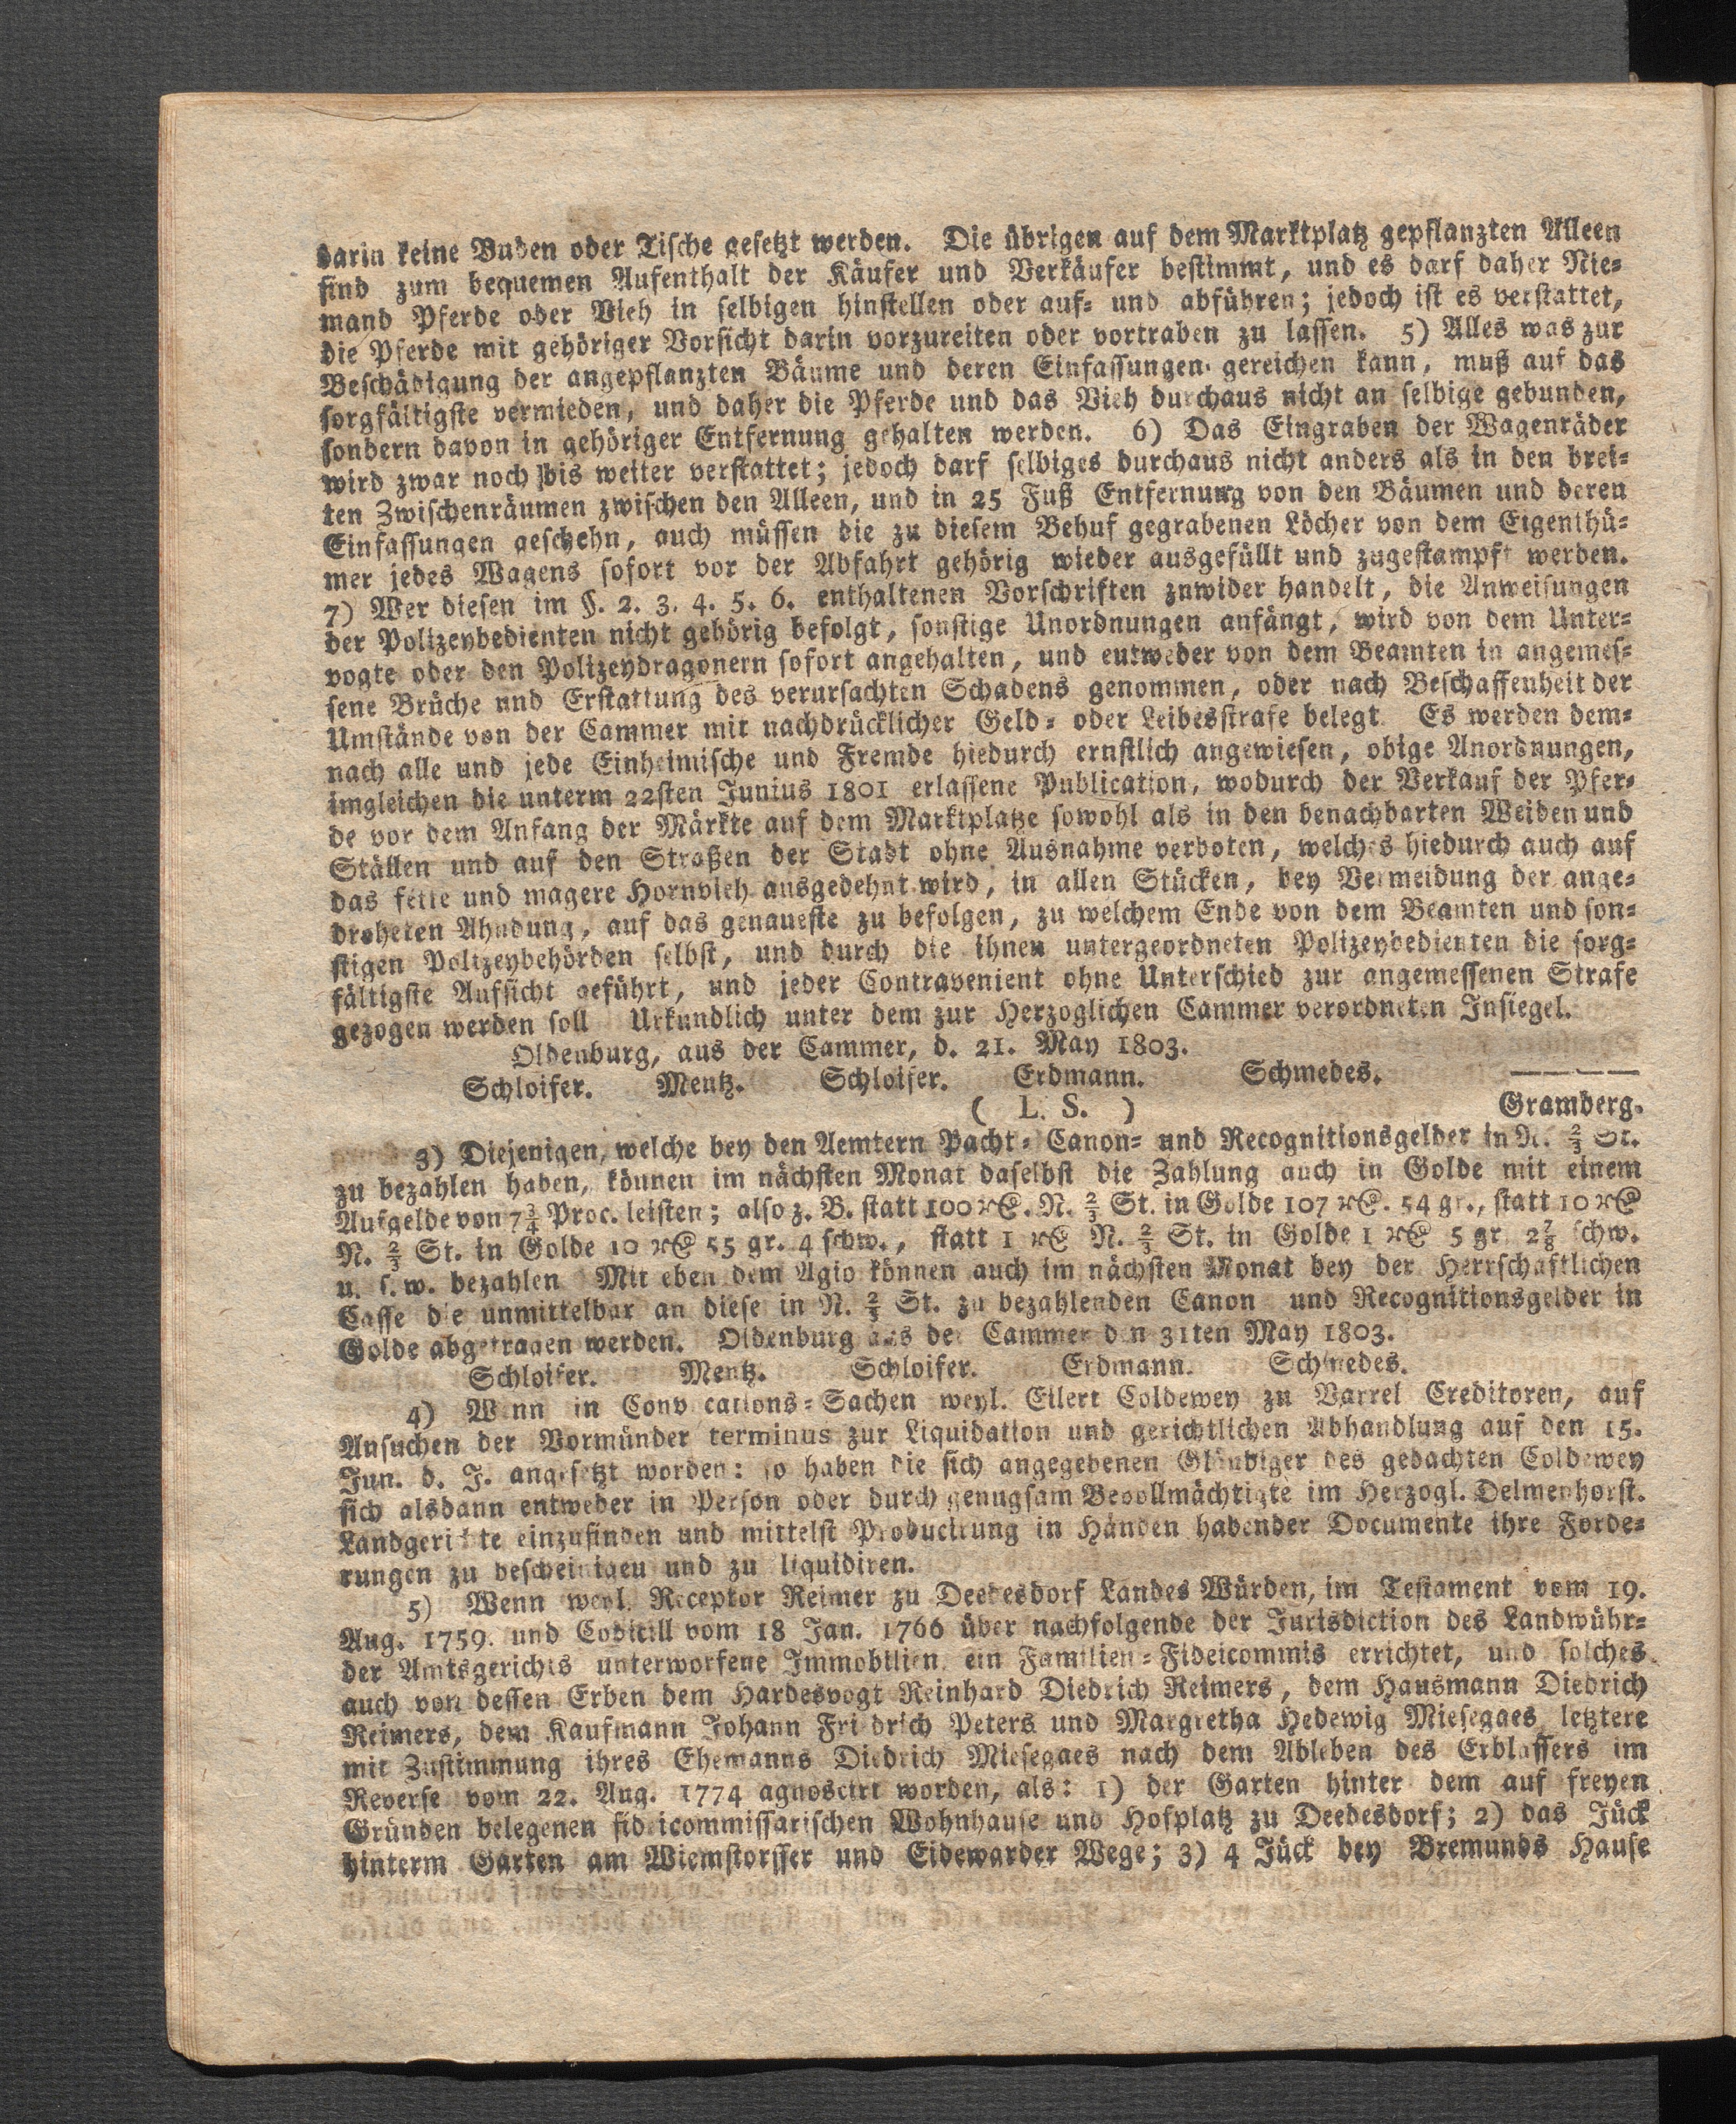 darin keine Buden oder Tische gesetzt werden. Die übrigen auf dem Marktplatz gepflanzten Alleen
sind zum bequemen Aufenthalt der Käufer und Verkäufer bestimmt, und es darf daher Nie-
mand Pferde oder Vieh in selbigen hinstellen oder auf- und abführen; jedoch ist es verstattet,
die Pferde mit gehöriger Vorsicht darin vorzureiten oder vortraben zu lassen. 5) Alles was zur
Beschädigung der angepflanzten Bäume und deren Einfassungen gereichen kann, muß auf das
sorgfältigste vermieden, und daher die Pferde und das Vieh durchaus nicht an selbige gebunden,
sondern davon in gehöriger Entfernung gehalten werden. 6) Das Eingraben der Wagenräder
wird zwar noch bis weiter verstattet; jedoch darf selbiges durchaus nicht anders als in den brei-
ten Zwischenräumen zwischen den Alleen, und in 25 Fuß Entfernung von den Bäumen und deren
Einfassungen geschehn, auch müssen die zu diesem Behuf gegrabenen Löcher von dem Eigenthü-
mer jedes Wagens sofort vor der Abfahrt gehörig wieder ausgefüllt und zugestampft werden.
7) Wer diesen im §. 2. 3. 4. 5. 6. enthaltenen Vorschriften znwider handelt, die Anweisungen
der Polizeybedienten nicht gehörig befolgt, sonstige Unordnungen anfängt, wird von dem Unter-
vogte oder den Polizeydragonern sofort angehalten, und entweder von dem Beamten in angemes-
sene Brüche und Erstattung des verursachten Schadens genommen, oder nach Beschaffenheit der
Umstände von der Cammer mit nachdrücklicher Geld- oder Leibesstrafe belegt. Es werden dem-
nach alle und jede Einheimische und Fremde hiedurch ernstlich angewiesen, obige Anordnungen,
imgleichen die unterm 22sten Junius 1801 erlassene Publication, wodurch der Verkauf der Pfer-
de vor dem Anfang der Märkte auf dem Marktplatze sowohl als in den benachbarten Weiden und
Ställen und auf den Straßen der Stadt ohne Ausnahme verboten, welches hiedurch auch auf
das fette und magere Hornvieh ausgedehnt wird, in allen Stücken, bey Vermeidung der ange-
droheten Ahndung, auf das genaueste zu befolgen, zu welchem Ende von dem Beamten und son-
stigen Polizeybehörden selbst, und durch die ihnen untergeordneten Polizeybedienten die sorg-
fältigste Aufsicht geführt, und jeder Contravenient ohne Unterschied zur angemessenen Strafe
gezogen werden soll Urkundlich unter dem zur Herzoglichen Cammer verordneten Insiegel.
Oldenburg, aus der Cammer, d. 21. May 1803.
Schloifer. Mentz. Schloifer. Erdmann. Schmedes.
( L. S. ) Gramberg.
3) Diejenigen, welche bey den Aemtern Pacht- Canon- und Recognitionsgelder in N. ⅔ St.
zu bezahlen haben, können im nächsten Monat daselbst die Zahlung auch in Golde mit einem
Aufgelde von 7¾ Proc. leisten; also z. B. statt 100 rthl. N. ⅔ St. in Golde 107 rthl. 54 gr., statt 10 rthl
N. ⅔ St. in Golde 10 rthl 55 gr. 4 schw., statt 1 rthl N. ⅔ St. in Golde 1 rthl 5 gr. 2⅞ schw.
u. s. w. bezahlen Mit eben dem Agio können auch im nächsten Monat bey der Herrschaftlichen
Casse die unmittelbar an diese in N. ⅔ St. zu bezahlenden Canon und Recognitionsgelder in
Golde abgetragen werden. Oldenburg aus der Cammer den 31ten May 1803.
Schloifer. Mentz. Schloifer. Erdmann. Schmedes.
4) Wenn in Convocations-Sachen weyl. Eilert Coldewey zu Varrel Creditoren, auf
Ansuchen der Vormünder terminus zur Liquidation und gerichtlichen Abhandlung auf den 15.
Jun. d. J. angesetzt worden: so haben die sich angegebenen Gläubiger des gedachten Coldewey
sich alsdann entweder in Person oder durch genugsam Bevollmächtigte im Herzogl. Delmenhorst.
Landgerichte einzufinden und mittelst Producirung in Händen habender Documente ihre Forde-
rungen zu bescheinigen und zu liquidiren.
5) Wenn weyl. Receptor Reimer zu Deedesdorf Landes Würden, im Testament vom 19.
Aug. 1759. und Codicill vom 18 Jan. 1766 über nachfolgende der Jurisdiction des Landwühr-
der Amtsgerichts unterworfene Immobilien ein Familien-Fideicommis errichtet, und solches
auch von dessen Erben dem Hardesvogt Reinhard Diedrich Reimers, dem Hausmann Diedrich
Reimers, dem Kaufmann Johann Friedrich Peters und Margretha Hedewig Miesegaes letztere
mit Zustimmung ihres Ehemanns Diedrich Miesegaes nach dem Ableben des Erblassers im
Reverse vom 22. Aug. 1774 agnoscirt worden, als: 1) der Garten hinter dem auf freyen
Gründen belegenen fideicommissarischen Wohnhause und Hofplatz zu Deedesdorf; 2) das Jück
hinterm Garten am Wiemstorffer und Eidewarder Wege; 3) 4 Jück bey Bremunds Hause